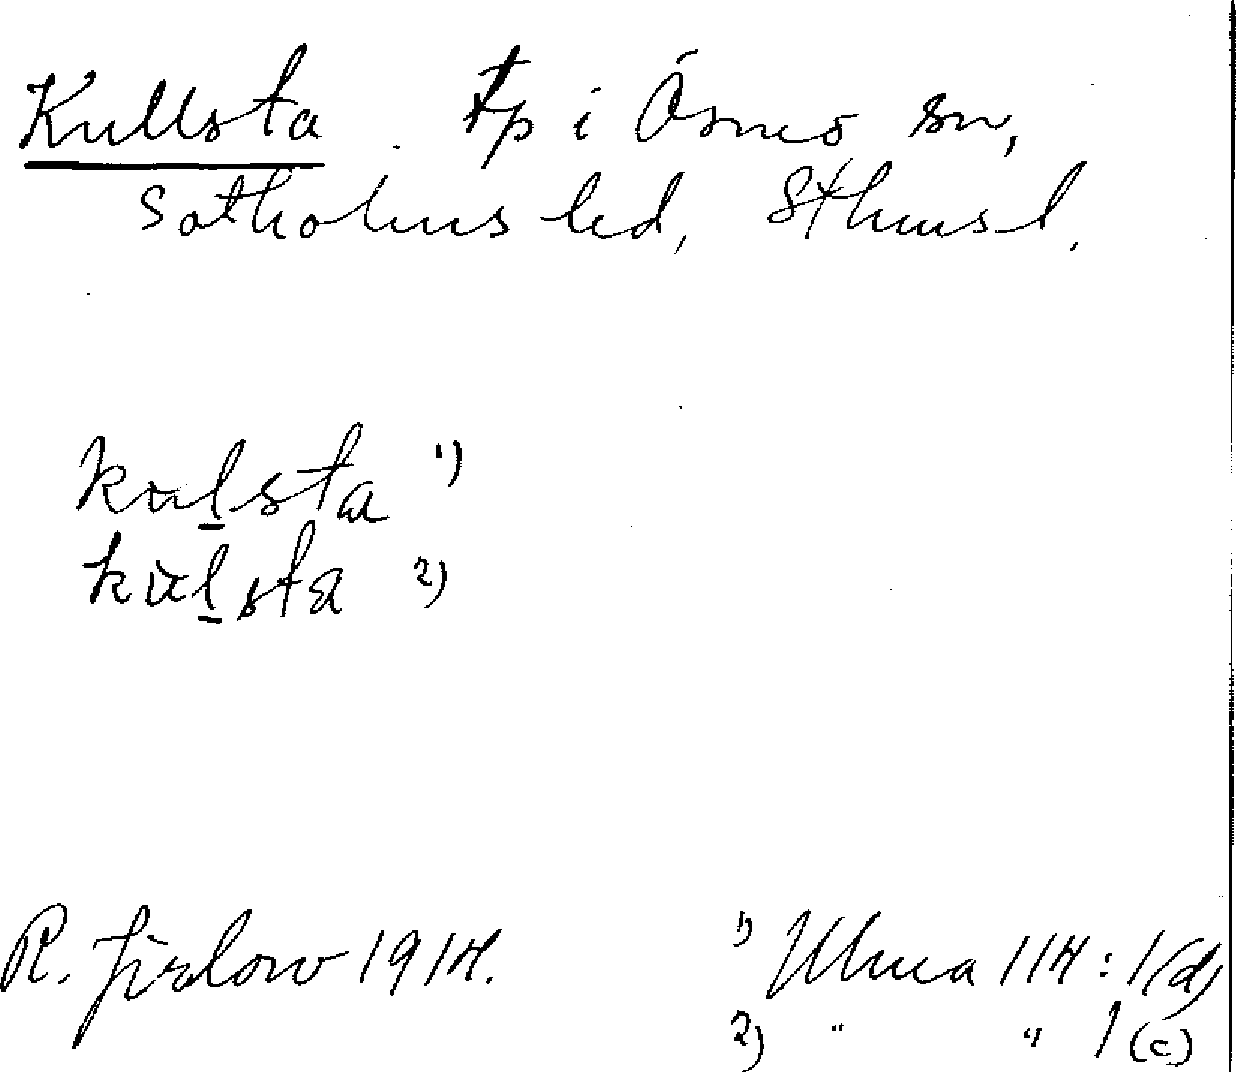 Kullsta tp i Ösmo sn,
Sotholms hd, Sthms l.
kulsta 1)
kulsta 2)
R. Jirlow 1914. 1) Ulma 114:1(d)
2) " " 1(c)